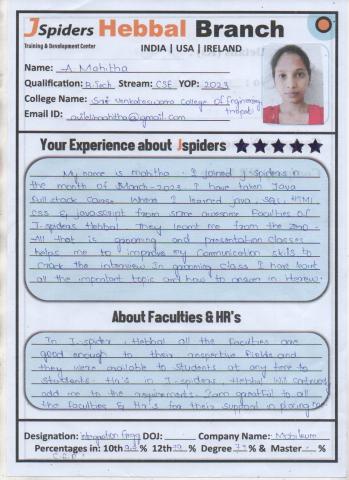 JSpiders Hebbal Branch
Training & Development Center
INDIA | USA | IRELAND
Name: A Mahitha
Qualification: B.Tech Stream: CSE YOP: 2023
College Name: Sri Venkateswara College of Engineering
Tirupati
Email ID: @gmail.com
Your Experience about Jspiders
My name is mahitha . I joined J-spiders in
the month of March-2023 I have taken Java
full stack Course. Where I learned java, SQL, HTML
CSS & javascript from some awesome Faculties of
J-spiders Hebbal. They learnt me from the Zero.
All that is grooming and presentation classes
helps me to improve my communication skills to
crack the interview. In grooming class I have learnt
all the important topic and how to answer in Interview.
About Faculties & HR's
In J-spider, Hebbal all the faculties are
good enough to their respective fields and
they were available to students at any time to
students. Hr's in J-spiders, Hebbal will continuously
add me to the requirements. I am greatful to all
the faculties & Hr's for their support in placing
Designation: Integration Engg DOJ: Company Name:
Percentages in: 10th % 12th % Degree % & Master - %